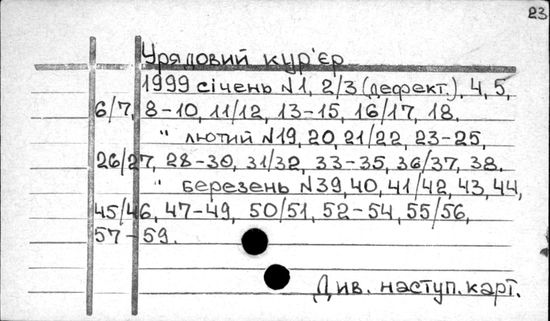 23
Урядовий кур'єр
1999 січень N1, 2/3 (дефект.), 4, 5,
6/7, 8-10, 11/12, 13-15, 16/17, 18.
" лютий N19, 20, 21/22, 23-25,
26/27, 28-30, 31/32, 33-35, 36/37, 38.
" березень N39, 40, 41/42, 43, 44,
45/46, 47-49, 50/51, 52-54, 55/56,
57-59.
Див. наступ. карт.